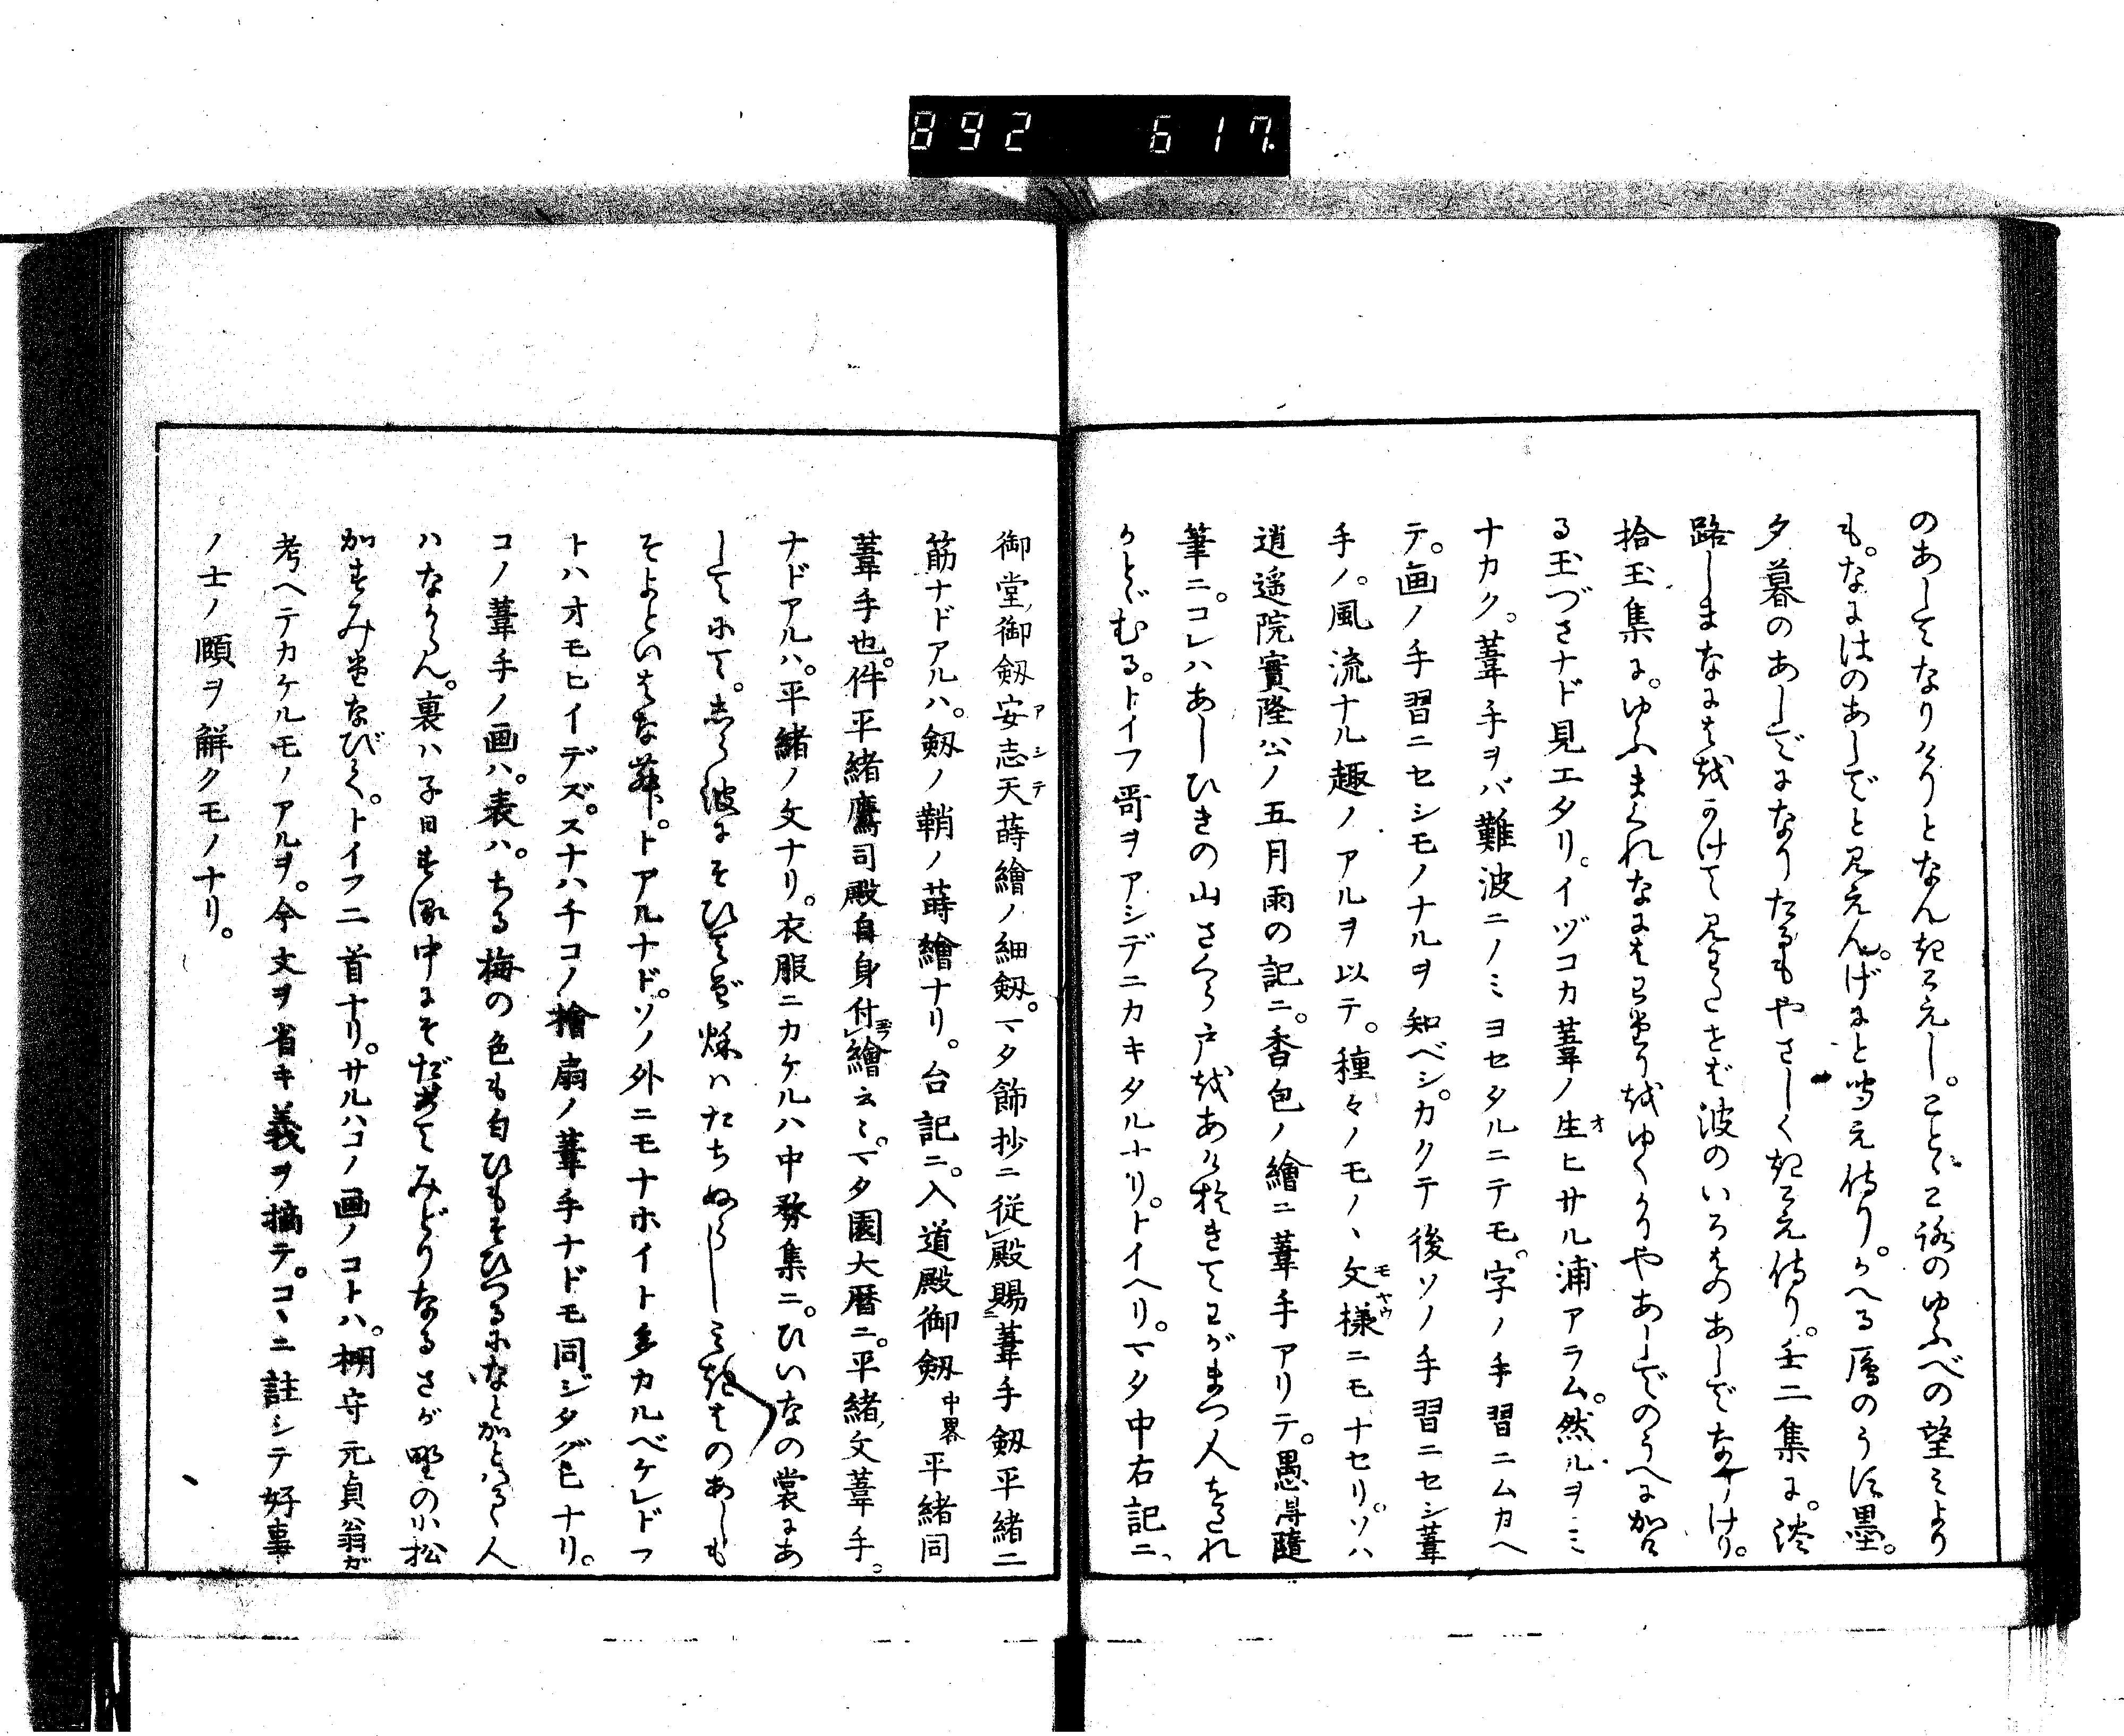 892 617.
のあしでなりけりとなんきこえし。ことゞころのゆふべの望みより
も。なにはのあしでと見えん。げにと覚え侍り。かへる雁のうす墨。
夕暮のあしでになりたるもやさしくきこえ侍り。壬二集に。淡
路しまなにはをかけて見わたせば波のいろはのあしでなりけり。
拾玉集に。ゆふまぐれなにはわたりをゆくかりやあしでのうへにかけ
る玉づさナド見エタリ。イヅコカ葦ノ生ヒサル浦アラム。然ルヲミ
ナカク。葦手ヲバ難波ニノミヨセタルニテモ。字ノ手習ニムカヘ
テ。画ノ手習ニセシモノナルヲ知ベシ。カクテ後ソノ手習ニセシ葦
手ノ。風流ナル趣ノアルヲ以テ。種々ノモノヽ文様ニモナセリ。ソハ
逍遥院實隆公ノ五月雨の記ニ。香包ノ繪ニ葦手アリテ。愚得随
筆ニ。コレハあしひきの山さくら戸をあけおきてわがまつ人をたれ
かとゞむる。トイフ哥ヲアシデニカキタルナリ。トイヘリ。マタ中右記ニ、
御堂御劔安志天蒔繪ノ細劔。マタ飾抄ニ従殿賜葦手劔平緒ニ
筋ナドアルハ。劔ノ鞘ノ蒔繪ナリ。台記ニ。入道殿御劔中畧平緒同
葦手也。件平緒鷹司殿自身付繪云々。マタ園大暦ニ。平緒文葦手。
ナドアルハ。平緒ノ文ナリ。衣服ニカケルハ中務集ニ。ひいなの裳にあ
しでにて。しら波にそひてぞ秋はたちぬらしみぎはのあしも
そよといはなむ。トアルナド。ソノ外ニモナホイト多カルベケレドフ
トハオモヒイデズ。スナハチコノ檜扇ノ葦手ナドモ同ジタグヒナリ。
コノ葦手ノ画ハ。表ハ。ちる梅の色も匂ひもそひつるになどかとはるゝ人
ハなからん。裏ハ子日する中にそだちてみどりなるさが野の小松
かすみたなびく。トイフ二首ナリ。サルハコノ画ノコトハ。棚守元貞翁ガ
考ヘテカケルモノアルヲ。今文ヲ省キ義ヲ摘テ。コヽニ註シテ好事
ノ士ノ頤ヲ解クモノナリ。